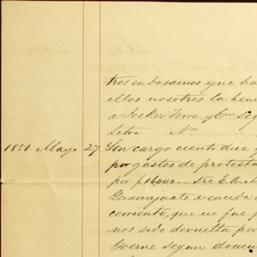 tros endosamos que ha
ellos nosotros la
a Secker Torre y Cia Seg
Letra No
1891 Mayo 27 Con cargo ciento diez y
por gastos de protesta
por $16000 Sre E. A. M
Guanajuato vencida e
corriente, que no fue p
nos sido devuelta por
Goerne segun docum